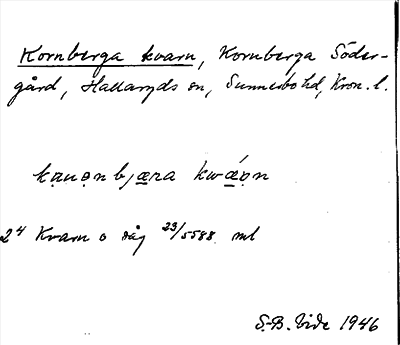 Kornberga kvarn, Kornberga Söder-
gård, Hallaryds sn, Sunnerbo hd, Kron. l.
kạnọnbjæ̱ra kwǽ̱ọn
24 Kvarn o såg 23/5588 ml
S.-B. Vide 1946